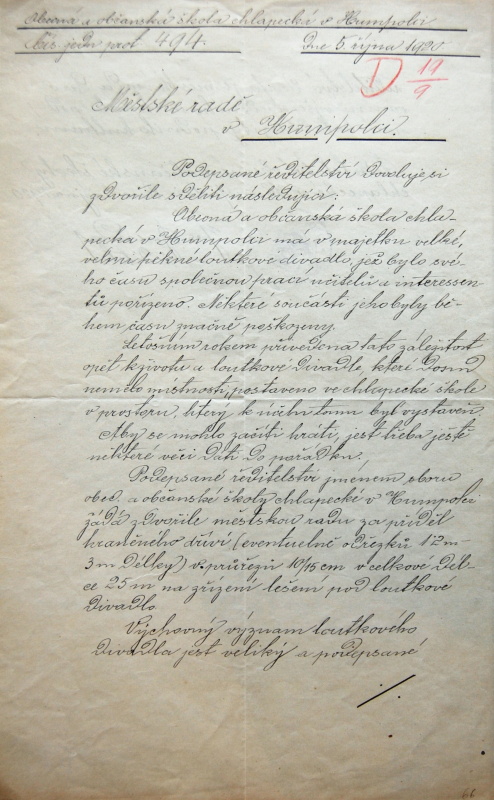 Obecná a občanská škola chlapecká v Humpolci
čís. jedn. prot. 494. Dne 5. října 1920
D 19/9
Městské radě
v Humpolci.
Podepsané ředitelství dovoluje si
zdvořile sděliti následující:
Obecná a občanská škola chla-
pecká v Humpolci má v majetku velké,
velmi pěkné loutkové divadlo, jež bylo své-
ho času společnou prací učitelů a interessen-
tů pořízeno. Některé součásti jeho byly bě-
hem času značně poškozeny.
Letošním rokem přivedena tato záležitost
opět k životu a loutkové divadlo, které dosud
nemělo místnosti, postaveno ve chlapecké škole
v prostoru, který k účelu tomu byl vystavěn.
Aby se mohlo začíti hráti, jest třeba ještě
některé věci dáti do pořádku.
Podepsané ředitelství jménem sboru
obec. a občanské školy chlapecké v Humpolci
žádá zdvořile městskou radu za příděl
hraněného dříví (eventuelně odřezků 1½m-
3m délky) v průřezu 10/15 cm v celkové dél-
ce 25 m na zřízení lešení pod loutkové
divadlo.
Výchovný význam loutkového
divadla jest veliký a podepsané
./.
66